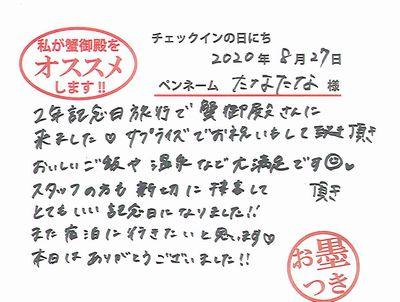 私が蟹御殿を
オススメ
します!!
チェックインの日にち
2020年8月27日
ペンネーム たなたな 様
2年記念日旅行で蟹御殿さんに
来ました♡ サプライズでお祝いもして頂き
おいしいご飯や温泉など大満足です☺♡
スタッフの方も親切に して頂き
とてもいい記念日になりました!!
また宿泊に行きたいと思います♡
本日はありがとうございました!!
お墨
つき